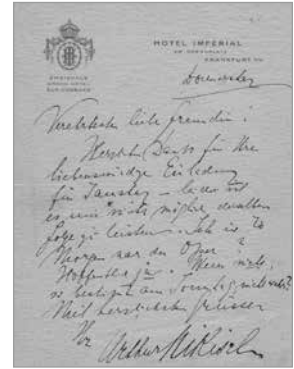 HOTEL IMPERIAL
AM OPERNPLATZ
FRANKFURT A/M
Donnerstag
Verehrteste liebe Freundin!
Herzlichen Dank für Ihre
liebenswürdige Einladung
für Samstag – leider ist
es mir nicht möglich derselben
Folge zu leisten. Ich bin
Morgen in der Oper?
Hoffentlich ja. Wenn nicht,
so bestimmt am Sonntag, nicht wahr?
Mit herzlichsten Grüssen
Ihr
Arthur Nikisch